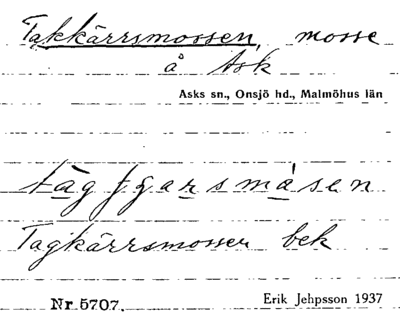 Takkärrsmossen, mosse
å Ask
Asks sn., Onsjö hd., Malmöhus län
Tagkärrsmossen bek
Nr 5707.
Erik Jehpsson 1937